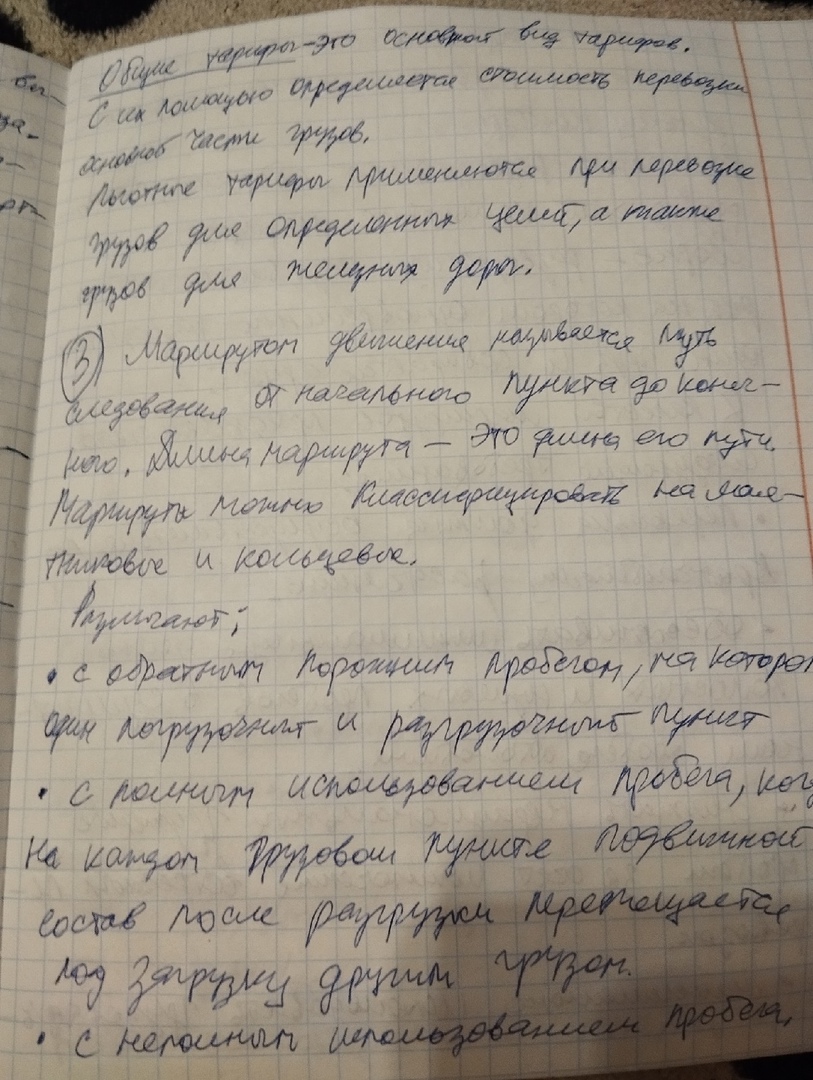 бы-
за-
Общие тарифы - это основной вид тарифов.
С их помощью определяется стоимость перевозки
основной части грузов.
Льготные тарифы применяются при перевозке
грузов для определенных целей, а также
грузов для железных дорог.
3) Маршрутом движения называется путь
следования от начального пункта до конеч-
ного. Длина маршрута — это длина его пути.
Маршруты можно классифицировать на маят-
никовые и кольцевые.
Различают:
• с обратным порожним пробегом, на котором
один погрузочный и разгрузочный пункт
• с полным использованием пробега, ког
на каждом грузовом пункте подвижной
состав после разгрузки перемещается
под загрузку другим грузом.
• с неполным использованием пробега,